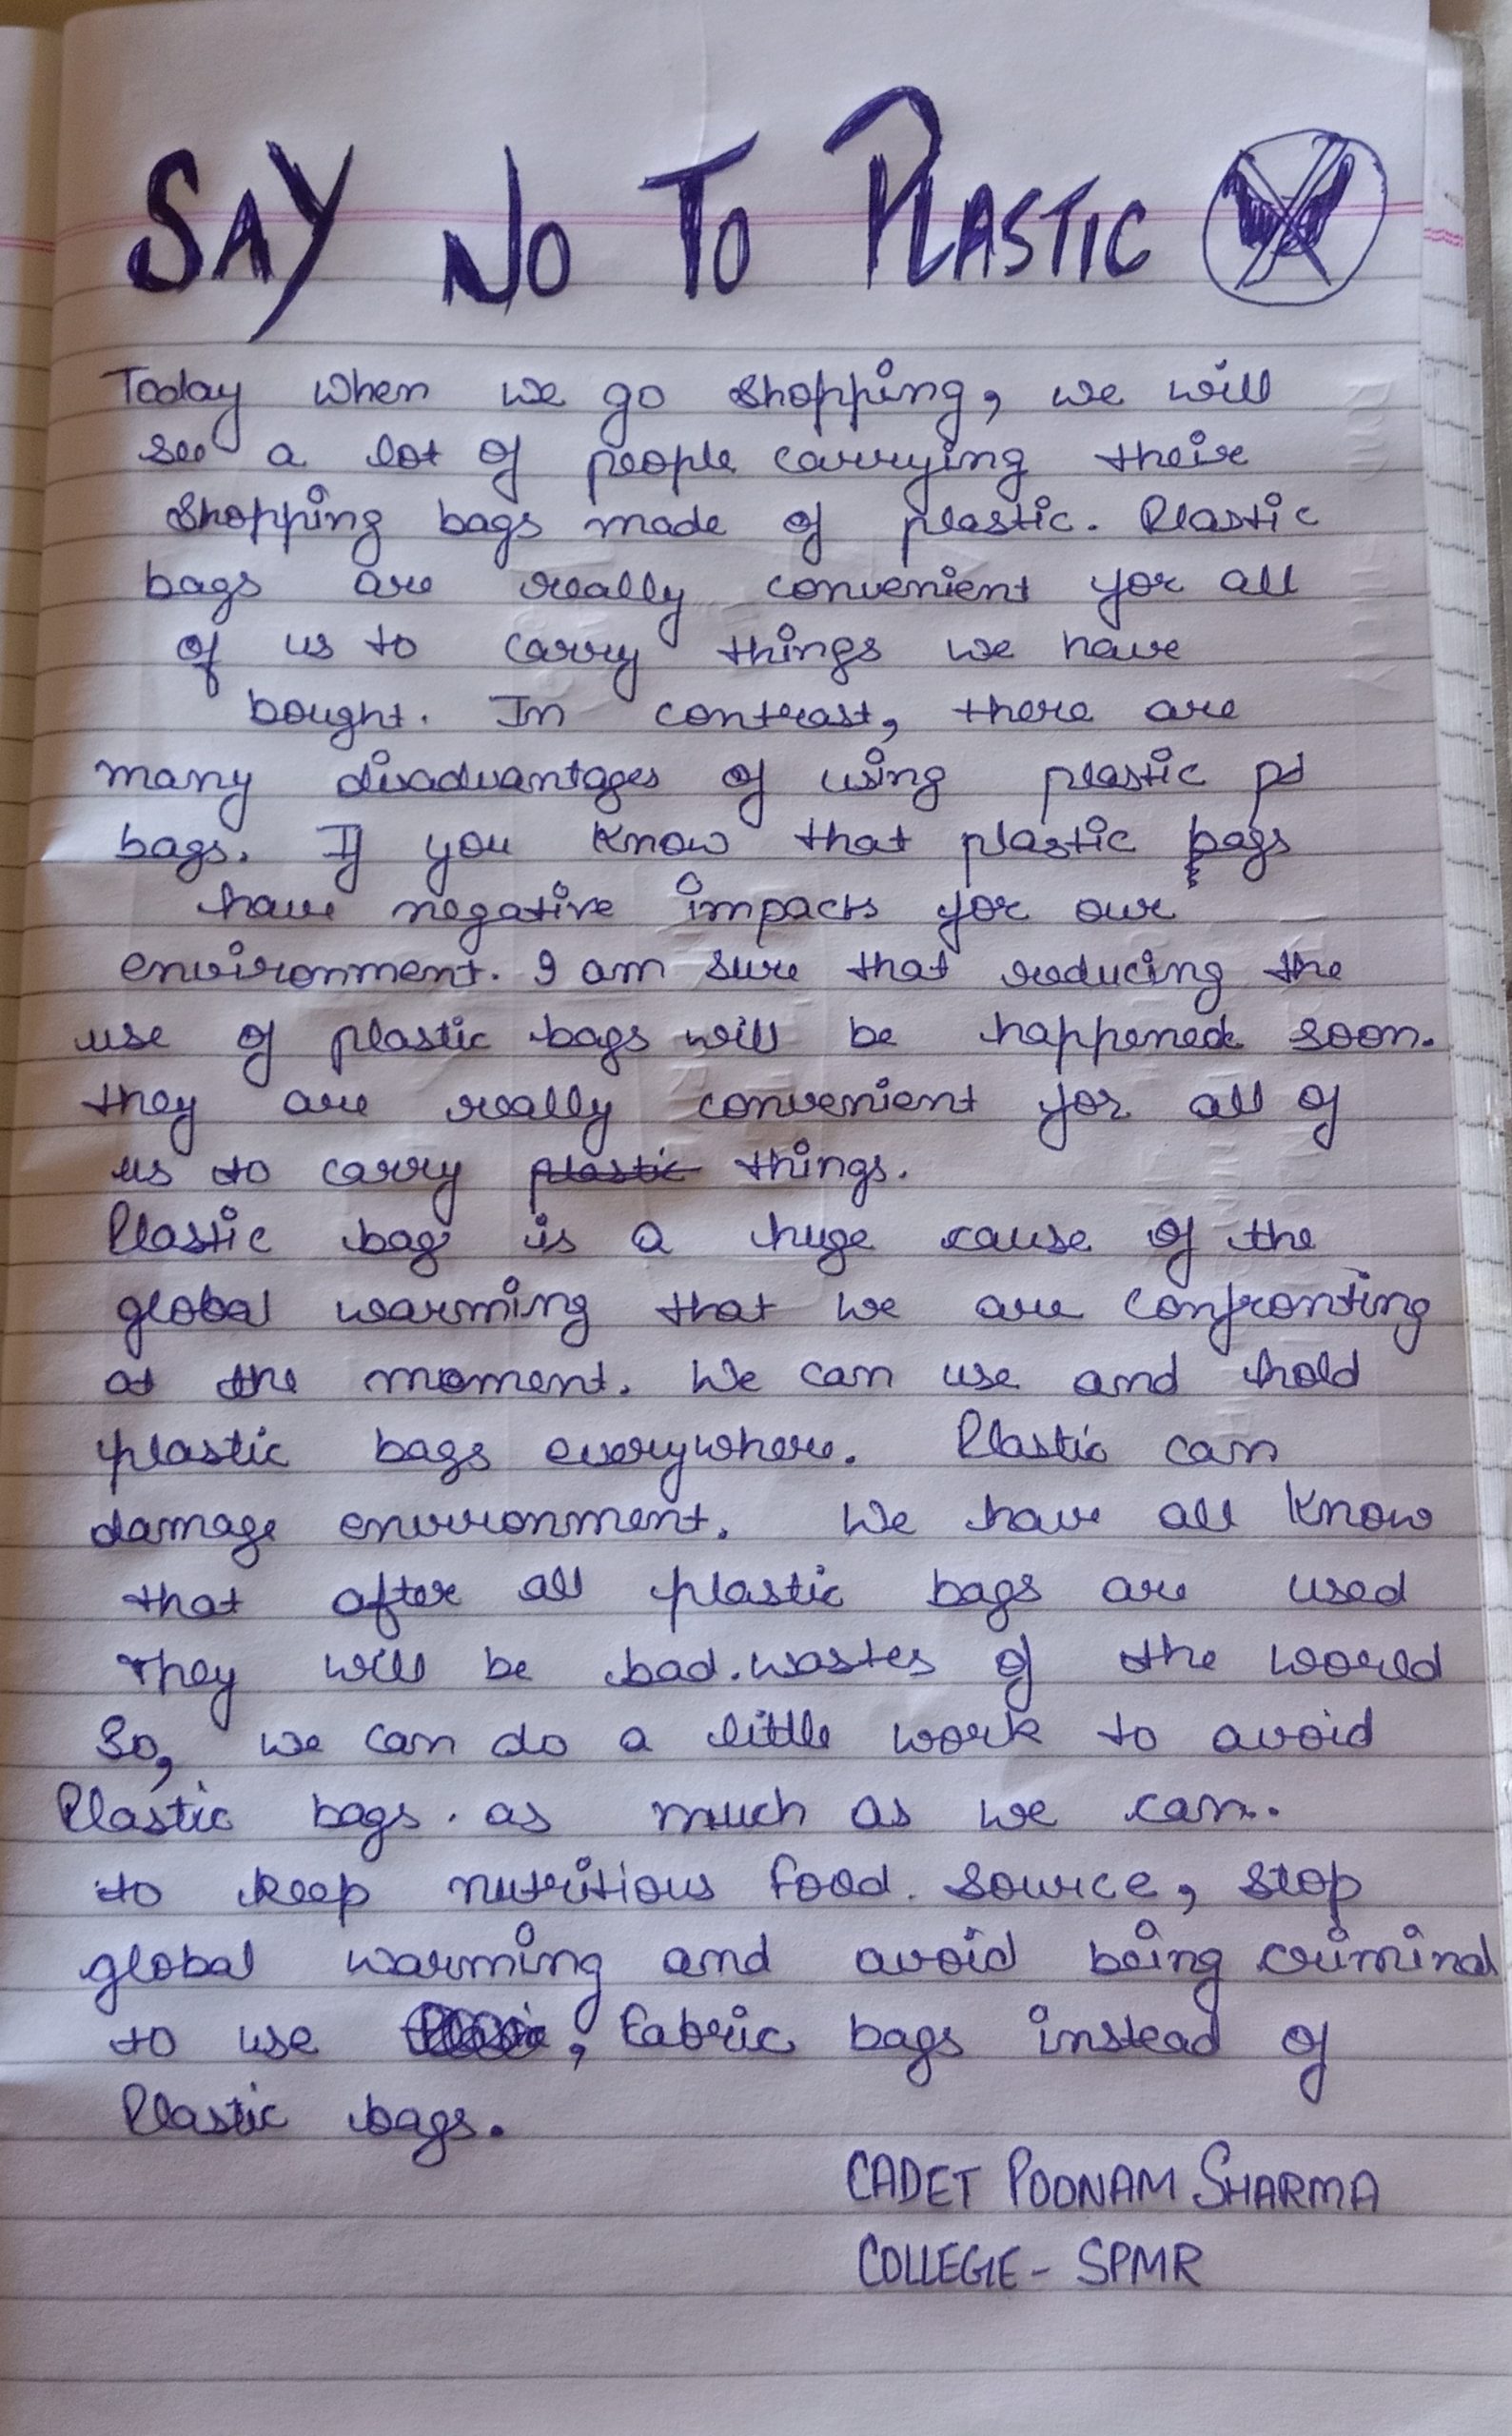 SAY NO TO PLASTIC
Today when we go shopping, we will
see a lot of people carrying their
shopping bags made of plastic. Plastic
bags are really convenient for all
of us to carry things we have
bought. In contrast, there are
many disadvantages of using plastic pd
bags. If you know that plastic bags
have negative impacts for our
environment. I am sure that reducing the
use of plastic bags will be happened soon.
they are really convenient for all of
us to carry plastic things.
Plastic bag is a huge cause of the
global warming that we are confronting
at the moment. We can use and hold
plastic bags everywhere. Plastic can
damage environment. We have all know
that after all plastic bags are used
They will be bad.wastes of the world
So, we can do a little work to avoid
Plastic bags. as much as we can.
to keep nutritious food. source, stop
global warming and avoid being criminal
to use , fabric bags instead of
Plastic bags.
CADET POONAM SHARMA
COLLEGE - SPMR